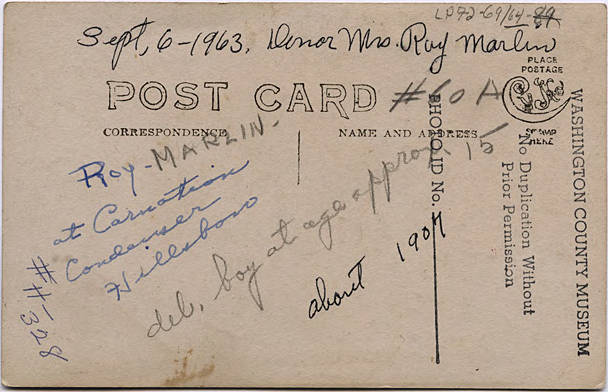 LP72-69/64-
Sept, 6-1963, Donor Mrs. Roy Marlin
PLACE
POSTAGE
STAMP
HERE
POST CARD
#60A
CORRESPONDENCE
NAME AND ADDRESS
Roy-MARLIN-
at Carnation
Condenser
Hillsboro
##-328
del. boy at age approx 15
about 1907
PHOTO ID No.
No Duplication Without
Prior Permission
WASHINGTON COUNTY MUSEUM